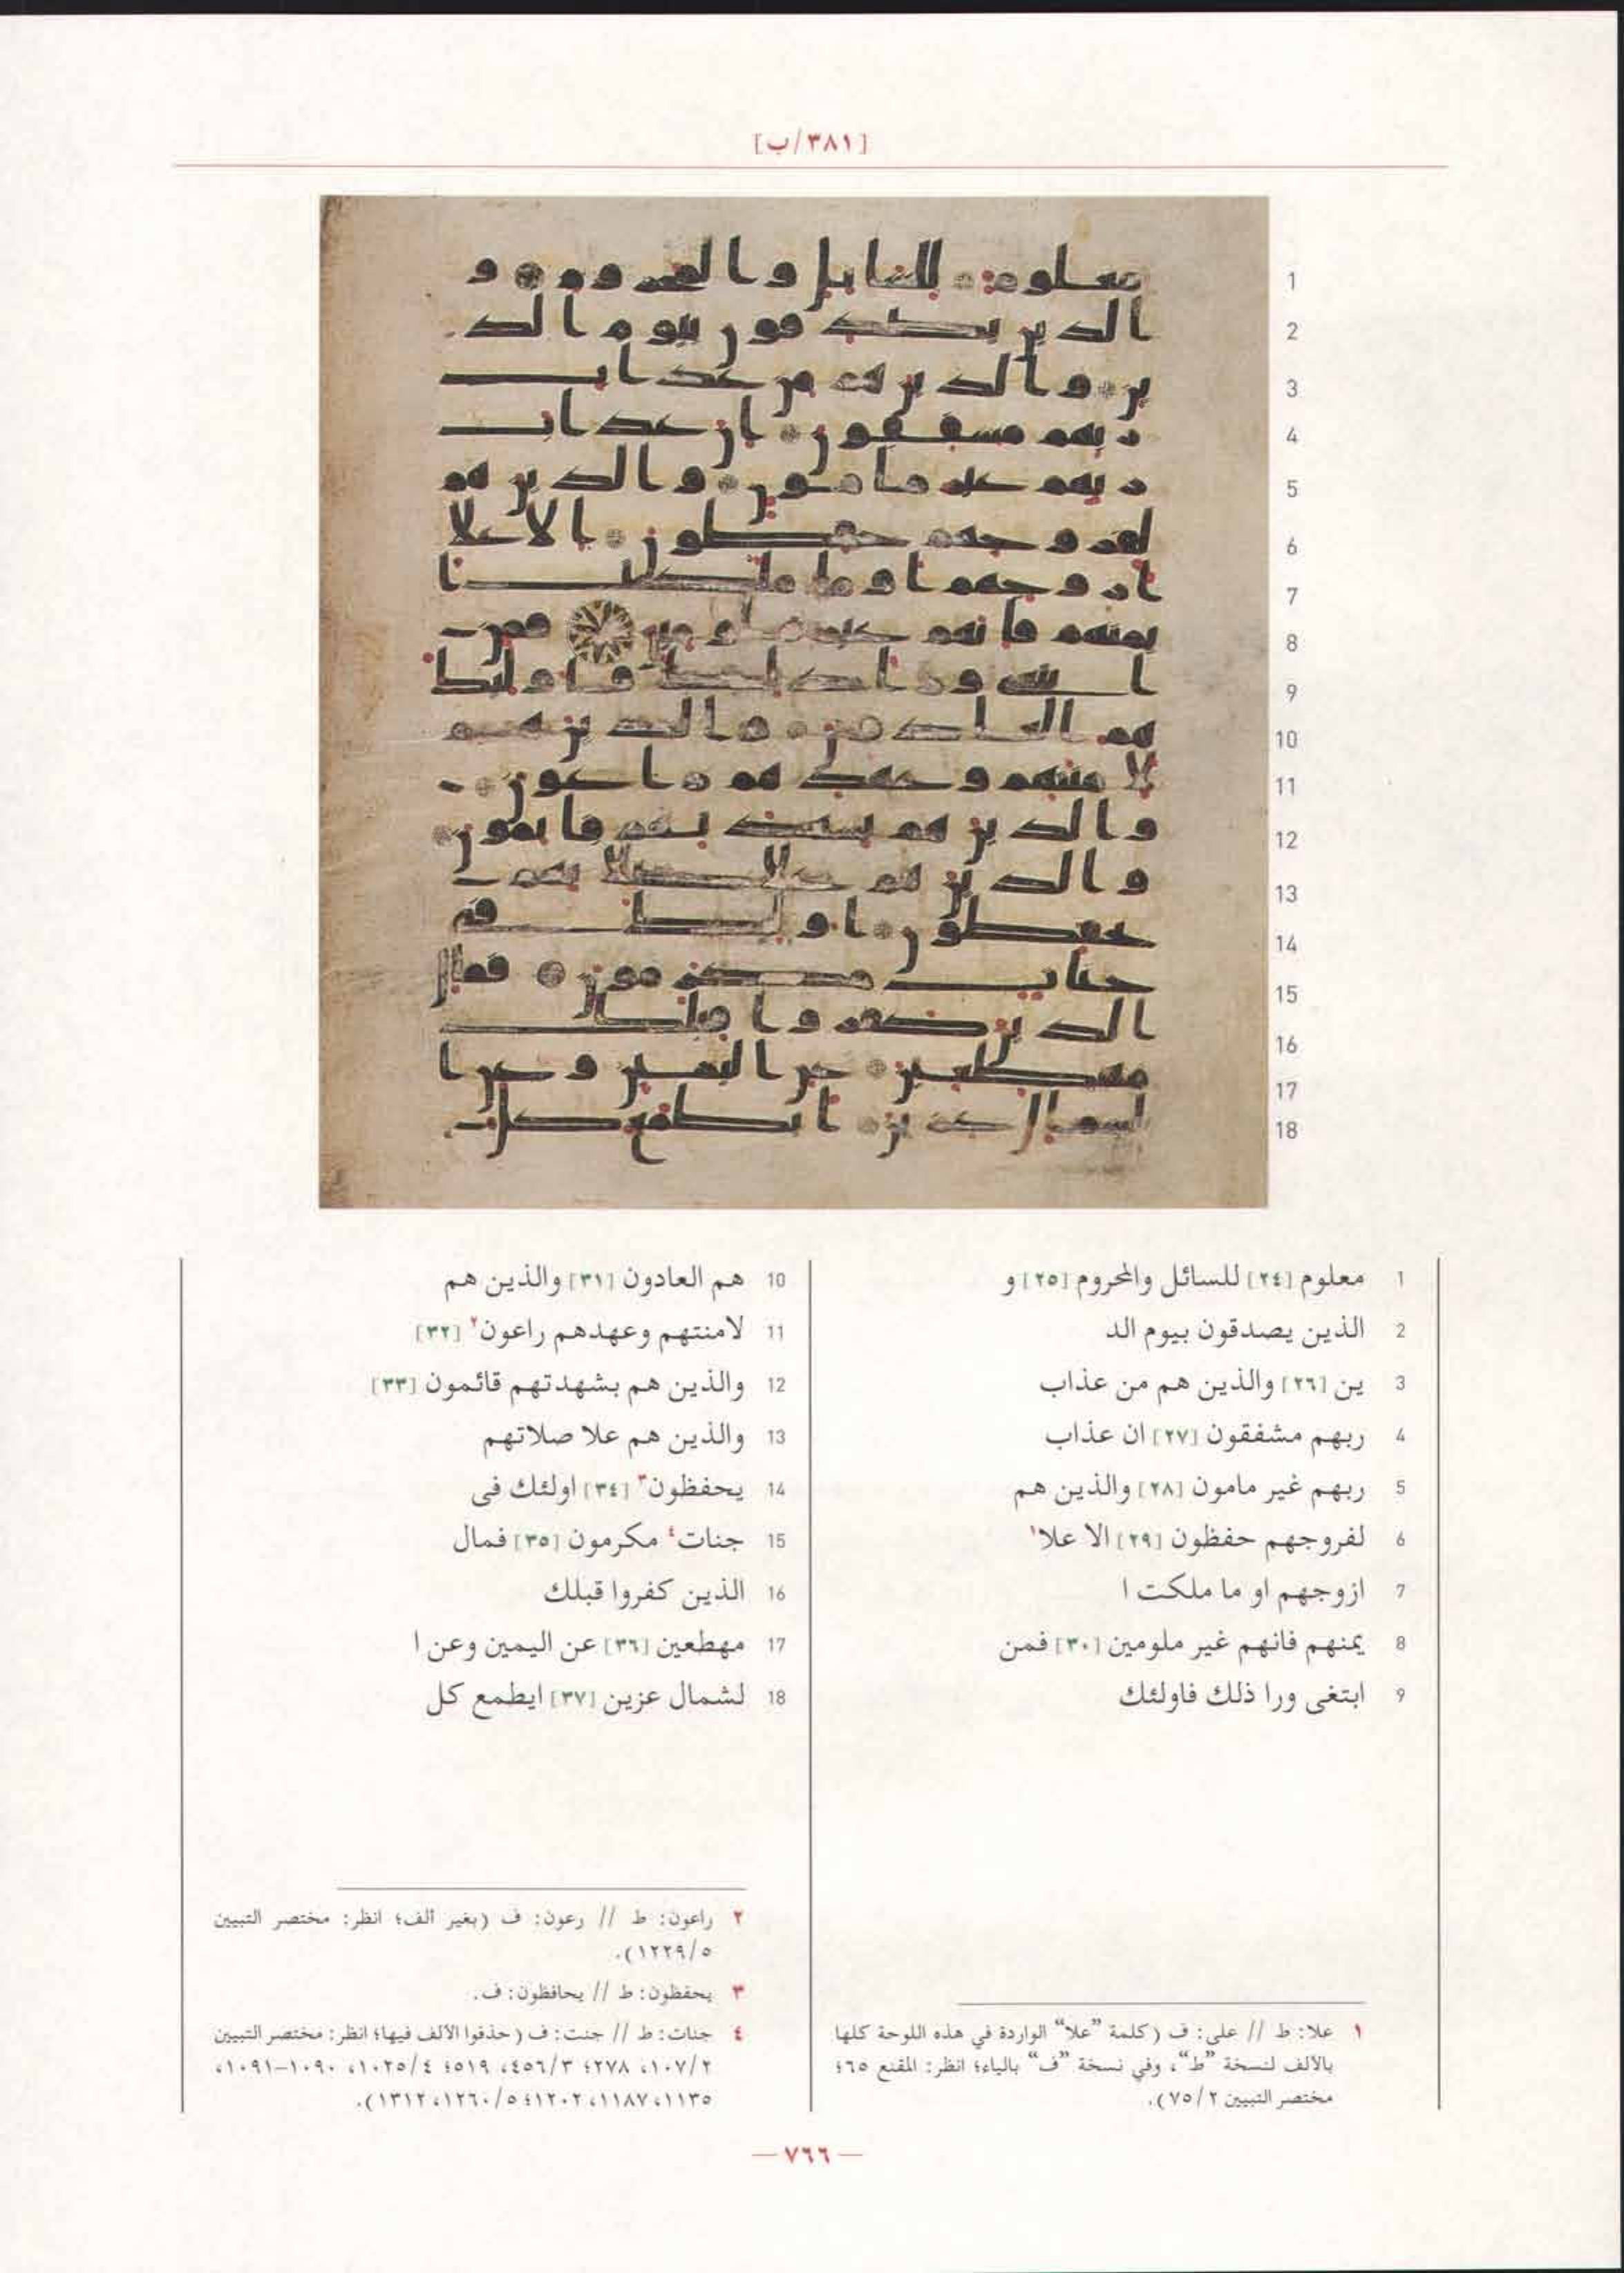 [٣٨١/ب]
1 معلوم [٢٤] للسائل والمحروم [٢٥] و
2 الذين يصدقون بيوم الد
3 ين [٢٦] والذين هم من عذاب
4 ربهم مشفقون [٢٧] ان عذاب
5 ربهم غير مامون [٢٨] والذين هم
6 لفروجهم حفظون [٢٩] الا علا١
7 ازوجهم او ما ملكت ا
8 يمنهم فانهم غير ملومين [٣٠] فمن
9 ابتغى ورا ذلك فاولئك
10 هم العادون [٣١] والذين هم
11 لامنتهم وعهدهم راعون٢ [٣٢]
12 والذين هم بشهدتهم قائمون [٣٣]
13 والذين هم علا صلاتهم
14 يحفظون٣ [٣٤] اولئك فى
15 جنات٤ مكرمون [٣٥] فمال
16 الذين كفروا قبلك
17 مهطعين [٣٦] عن اليمين وعن ا
18 لشمال عزين [٣٧] ايطمع كل
١ علا: ط // على: ف (كلمة ”علا“ الواردة في هذه اللوحة كلها
بالألف لنسخة ”ط“، وفي نسخة ”ف“ بالياء؛ انظر: المقنع ٦٥؛
مختصر التبيين ٧٥/٢).
٢ راعون: ط // رعون: ف (بغير ألف؛ انظر: مختصر التبيين
١٢٢٩/٥).
٣ يحفظون: ط // يحافظون: ف.
٤ جنات: ط // جنت: ف (حذفوا الألف فيها؛ انظر: مختصر التبيين
١٠٧/٢، ٢٧٨؛ ٤٥٦/٣، ٥١٩؛ ١٠٢٥/٤، ١٠٩٠–١٠٩١،
١١٣٥، ١١٨٧، ١٢٠٢؛ ١٢٦٠/٥، ١٣١٢).
— ٧٦٦ —